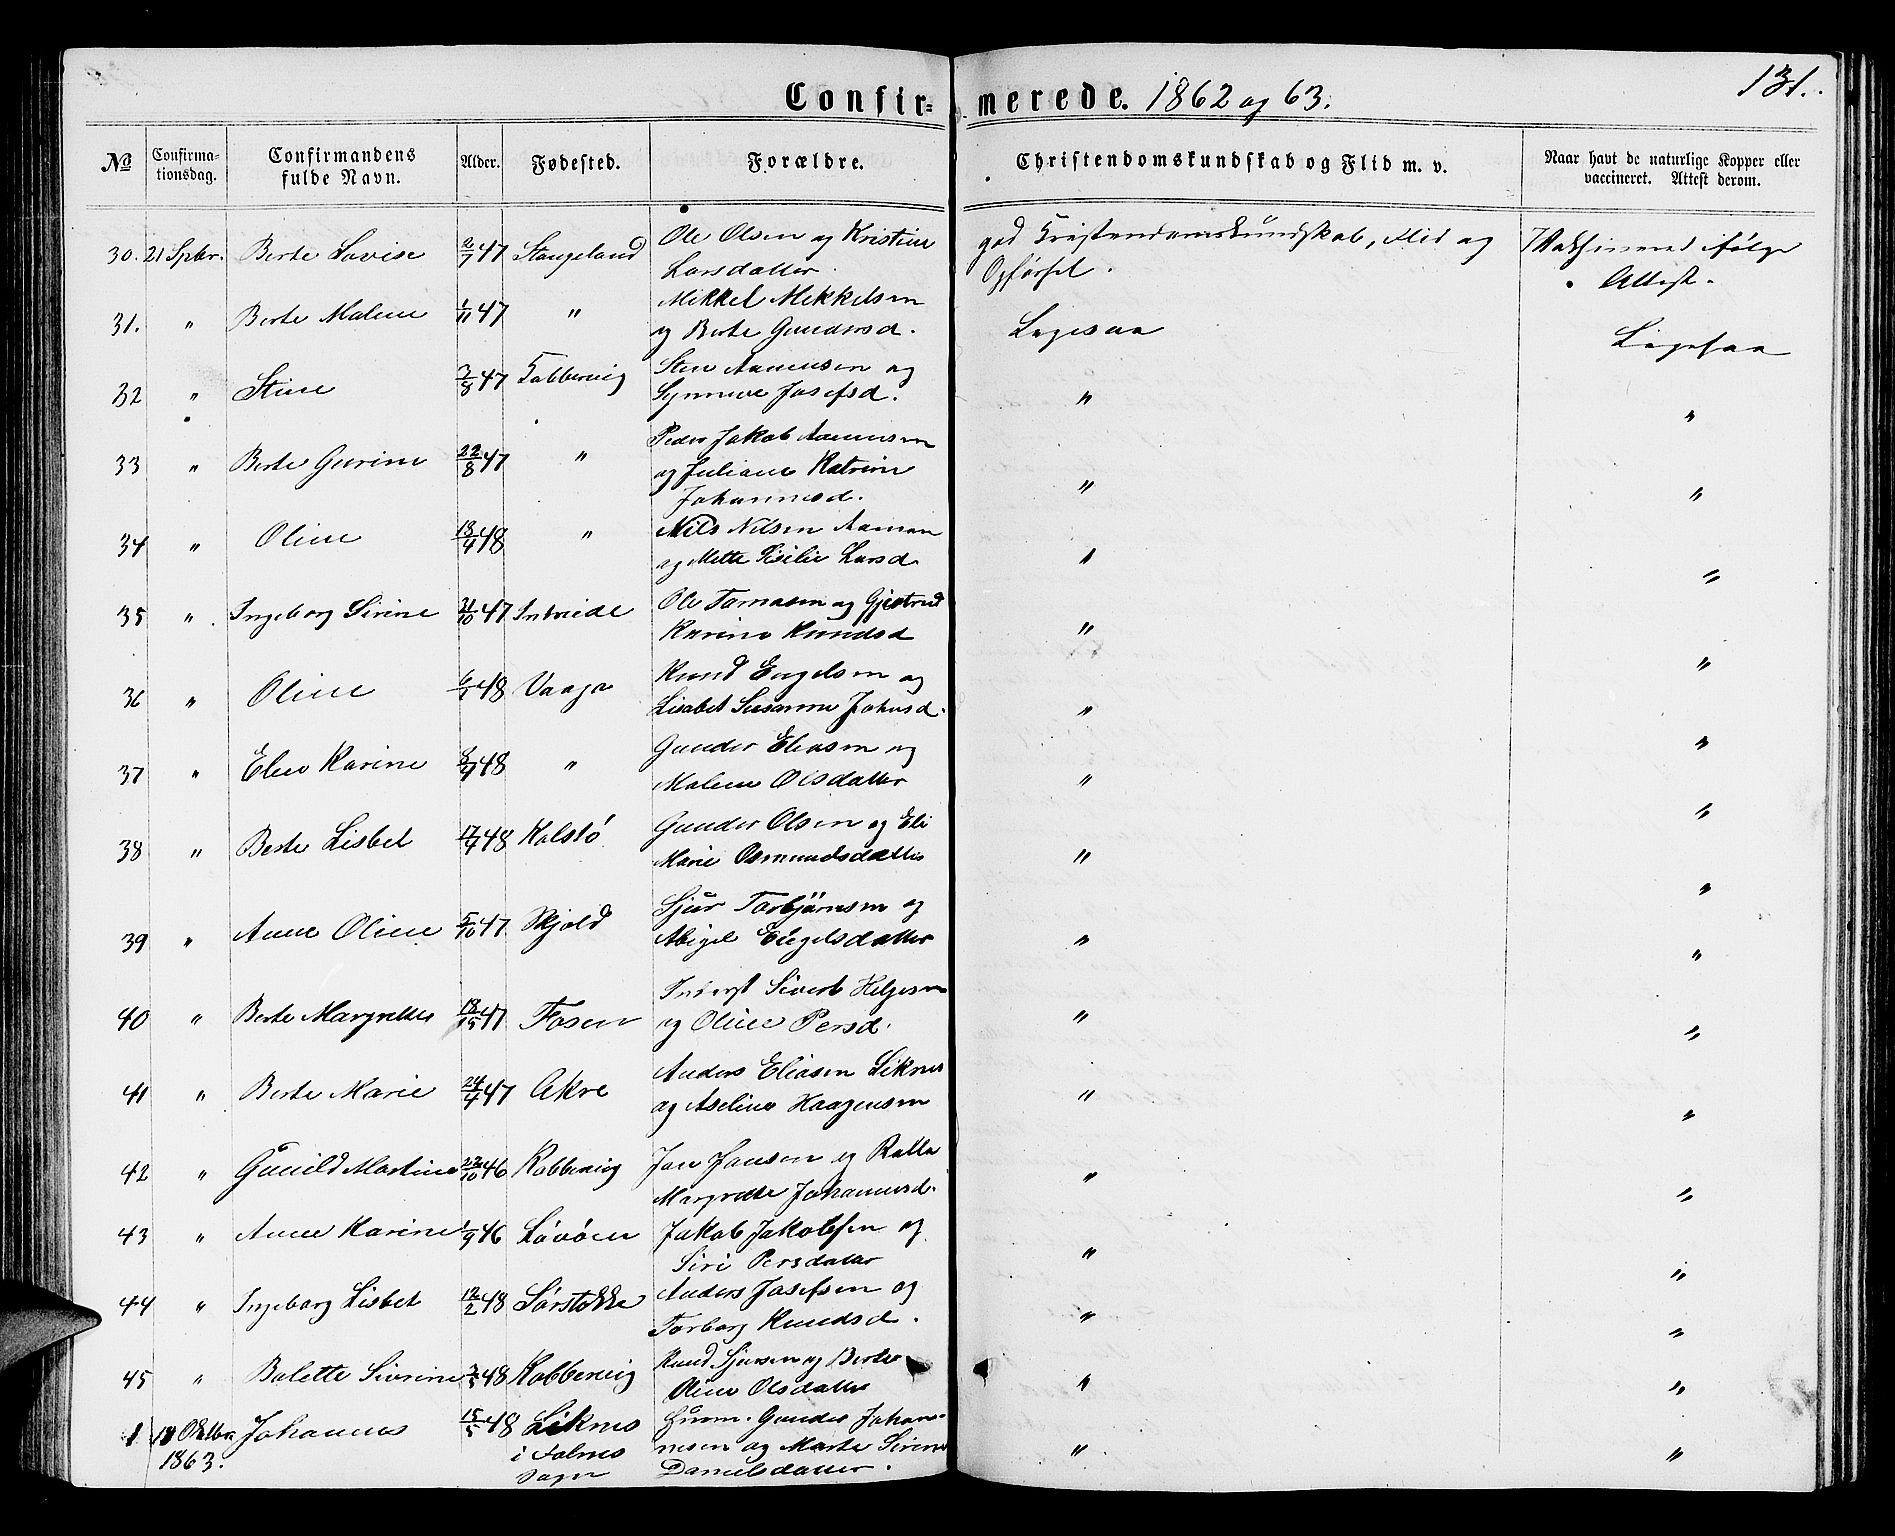 Confir= merede. 1862 og 63. 131.
No Confirma-tionsdag. Confirmandens fulde Navn. Alder. Fødested. Forældre. Christendomskundskab og Flid m. v. Naar havt de naturlige Kopper eller vaccineret. Attest derom.
30. 21 Sptbr. Berte Lovise 2/7 47 Stangeland Ole Olsen og Kristine god Kristendomskundskab, Flid og Vaksinered ifølge
Larsdatter. Opførsel. Attest.
31. " Berte Malene 1/11 47 " Mikkel Mikkelsen Ligesaa Ligesaa
og Berte Gundersd.
32 " Stine 7/8 47 Sten Aanensen og " "
Synneve Josefsd.
33 " Berte Gurine 22/8 47 " Peder Jakob Aanensen " "
og Juliane Katrine
Johannesd.
34 " Oline 13/4 48 " Nils Nilsen Aaman " "
og Mette Lars d
35 " Ingeborg Sirine 21/10 47 Ole Tomasen og Gjertrud " "
Karine Knudsd
36 " Oline 6/1 48 Vaage Knud Engelsen og " "
Lisabet Susanne Johnsd.
37 " Elen Karine 48 " Gunder Eliasen og " "
Malene Olsdatter
38 " Berte Lisbet 17/4 48 Kalstø Gunder Olsen og Eli " "
Marie Osmundsdatter
39 " Anne Oline 5/10 47 Skjold Sjur Torbjørnsen og " "
Abigel Engelsdatter
40 " Berte Margrette 47 Fosen Inderst Sivert Helgesen " "
og Oline Persd.
41 " Berte Marie 24/4 47 Akre Anders Eliasen Liknes " "
og Aseline Haagensen
42 " Gunild Martine 22/10 46 Kobbervig Jan Jansen og " "
Margrette Johannesd.
43 " Anne Karine 1/9 46 Løvøen Jakob Jakobsen og " "
Siri Persdatter
44 " Ingeborg Lisbet 12/2 48 Sørstokke Anders Josefsen og " "
Torborg Knudsd.
45 " Bolette Sivrine 48 Kobbervig Knud Sjursen og Berte " "
Oline Olsdatter
1 Oktbr Johannes 15/5 48 Liknes Husm. Gunder Johan-
1863. i Falnes nesen og Marte Sirene " "
Sogn Danielsdatter.